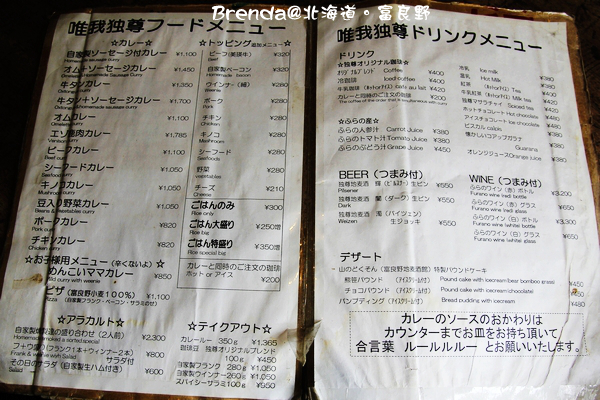 Brenda@北海道。富良野
唯我独尊フードメニュー
☆カレー☆
自家製ソーセージ付カレー ¥1,100
Homemade Sausage curry
オム+ソーセージカレー ¥1,450
牛タン+ソーセージカレー ¥1,700
オムカレー ¥1,100
エゾ鹿肉カレー ¥1,785
ビーフカレー ¥1,100
Beef curry
シーフードカレー
Seafood curry
キノコカレー
Mushroom curry
豆入り野菜カレー
ポークカレー
Pork curry
チキンカレー
Chicken curry
☆お子様用メニュー(辛くないよ)☆
めんこいママカレー ¥850
ピザ(富良野小麦100%)
Pizza (自家製フランク・ベーコン・サラミのせ)
☆アラカルト☆
自家製燻製の盛り合わせ(2人前) ¥2,300
フ+ウ(フランク1本+ウィンナー2本) ¥800
Frank & weenie with Salad サラダ付
その日のサラダ(自家製生ハム付き) ¥600
Salad
☆トッピング追加メニュー☆
ビーフ(美瑛牛) ¥320
Beef
自家製ベーコン ¥320
Homemade bacon
ウインナー(補) ¥280
ポーク ¥280
Pork
チキン ¥280
Chicken
キノコ ¥280
Mushroom
シーフード ¥280
Seafoods
野菜 ¥280
vegetables
チーズ ¥210
Cheese
ごはんのみ ¥300
Rice only
ごはん大盛り ¥250増
Rice big
ごはん特盛り ¥350増
Rice special big
カレーと同時のご注文の珈琲
Hot or アイス ¥200
☆テイクアウト☆
カレールー 350g ¥1,365
珈琲豆 独尊オリジナルブレンド
100g ¥1,450
自家製フランク 280g ¥1,050
自家製ウインナー 260g ¥1,050
スパイシーサラミ 100g ¥950
唯我独尊ドリンクメニュー
ドリンク
☆独尊オリジナル珈琲☆
オリジナルブレンド Coffee ¥400
冷珈琲 Iced-coffee ¥420
牛乳珈琲(ホットorアイス) café au lait ¥420
カレーと同時のご注文の珈琲 ¥200
The coffee of the order that is simultaneous with curry
☆ふらの産☆
ふらの人参汁 Carrot Juice ¥380
ふらのトマト汁 Tomato Juice ¥380
ふらのぶどう汁 Grape Juice ¥450
冷乳 Ice milk ¥380
温乳 Hot Milk ¥380
紅茶 (ホットorアイス) Tea
牛乳紅茶 (ホットorアイス)
独尊マサラチャイ Spiced tea
ホットチョコレート Hot chocolate
アイスチョコレート Ice chocolate
ビスカル calpic
懐かしいコアップガラナ
Guarana ¥380
オレンジジュース Orange juice ¥380
BEER(つまみ付)
独尊地麦酒 輝(ピルスナー)生ビン ¥550
Pilsener
独尊地麦酒 闇(ダーク)生ビン ¥550
Dark
独尊地麦酒 濁(バイツェン)
Weizen 生ジョッキ ¥550
WINE(つまみ付)
ふらのワイン(赤)ボトル ¥3,200
Furano wine (red) bottle
ふらのワイン(赤)グラス ¥650
Furano wine (red) glass
ふらのワイン(白)ボトル
Furano wine (white) bottle
ふらのワイン(白)グラス ¥650
Furano wine (white) glass
デザート
山のどくそん(富良野地麦酒館)特製パウンドケーキ
熊笹パウンド (アイスクリーム付) Pound cake with icecream(bear bamboo grass)
チョコパウンド (アイスクリーム付) Pound cake with icecream(chocolate) ¥450
パンプディング (アイスクリーム付) Bread pudding with icecream ¥480
カレーのソースのおかわりは
カウンターまでお皿をお持ち頂いて
合言葉 ルールルルー とお願いいたします。